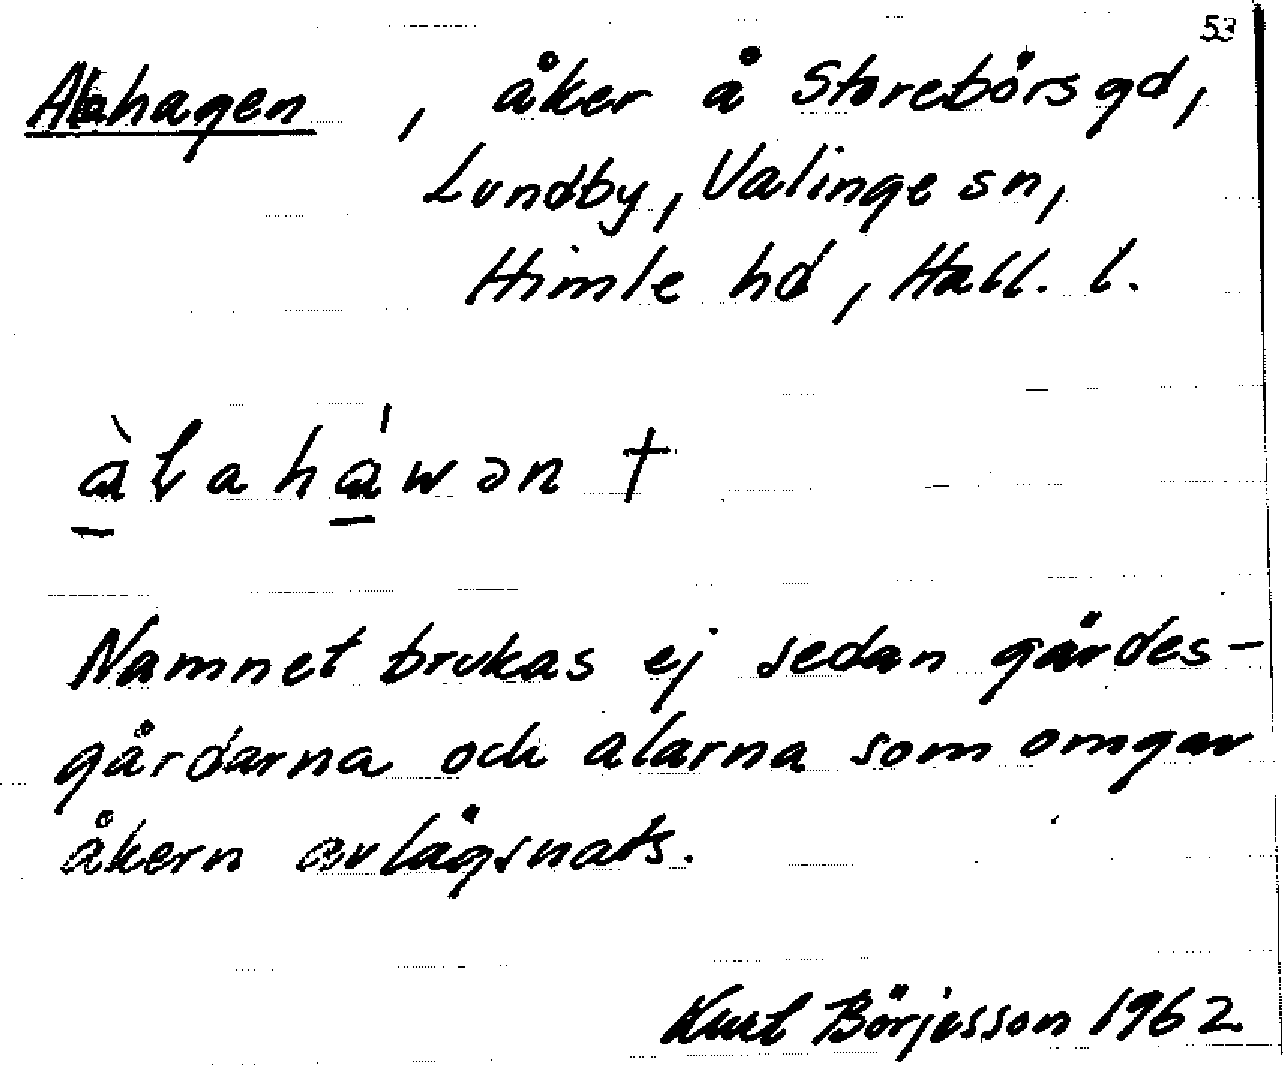 53
Alahagen, åker å Storebörsgd,
Lundby, Valinge sn,
Himle hd, Hall. l.
àlaháwən †
Namnet brukas ej sedan gärdes-
gårdarna och alarna som omgav
åkern avlägsnats.
Kurt Börjesson 1962